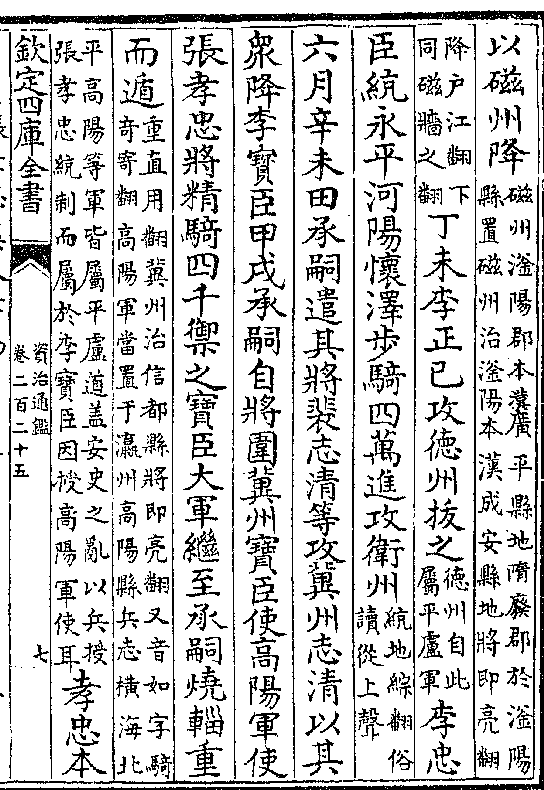 以磁州降磁州滏陽郡本漢廣平縣地隋廢郡於滏陽
縣置磁州治滏陽本漢成安縣地將即亮翻
降户江翻下
同磁牆之翻丁未李正己攻德州拔之德州自此
屬平盧軍李忠
臣統永平河陽懷澤步騎四萬進攻衛州統地綜翻俗
讀從上聲
六月辛未田承嗣遣其將裴志清等攻冀州志清以其
衆降李寶臣甲戌承嗣自將圍冀州寶臣使高陽軍使
張孝忠將精騎四千禦之寶臣大軍繼至承嗣燒輜重
而遁重直用翻冀州治信都縣將即亮翻又音如字騎
奇寄翻高陽軍當置于瀛州高陽縣兵志横海北
平高陽等軍皆屬平盧道盖安史之亂以兵授
張孝忠統制而屬於李寶臣因授高陽軍使耳孝忠本
欽定四庫全書
資治通鑑
卷二百二十五
七